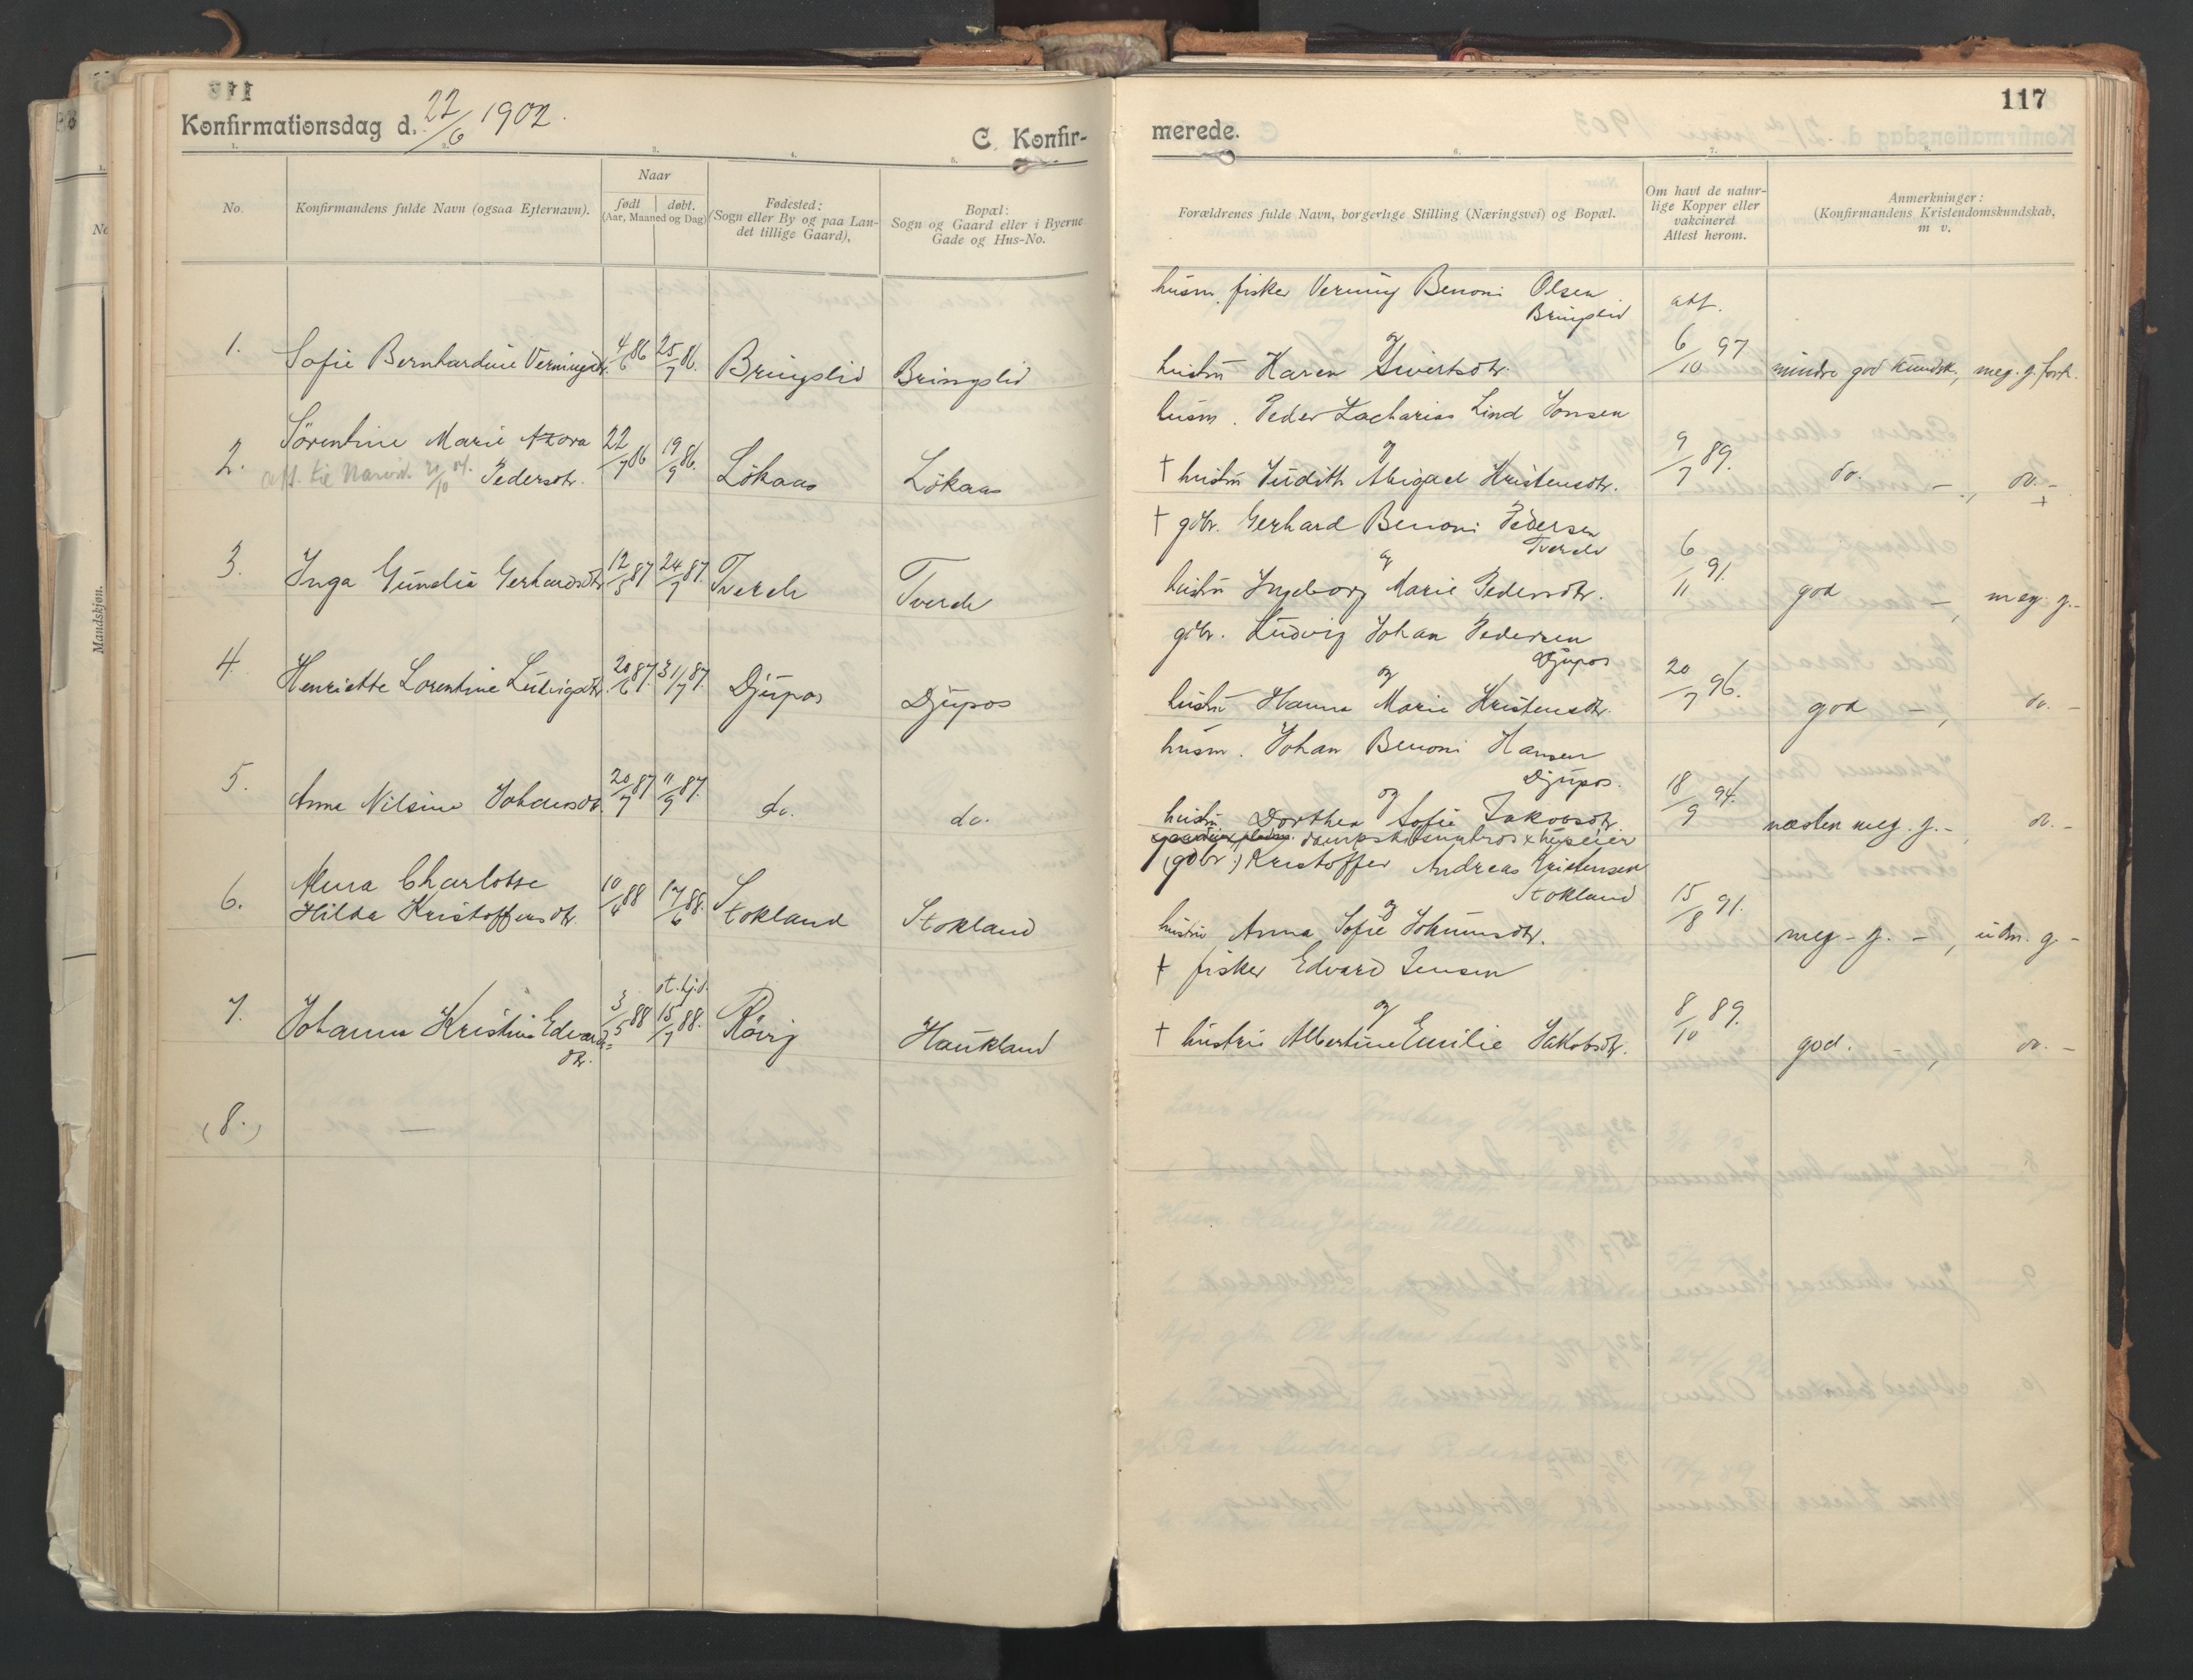 Konfirmationsdag d. 22/6 1902.
C. Konfir-
merede.
117
1. 2. 3. 4. 5. 6. 7. 8.
No.
Konfirmandens fulde Navn (ogsaa Efternavn).
Naar
født døbt.
(Aar, Maaned og Dag)
Fødested:
(Sogn eller By og paa Lan-
det tillige Gaard),
Bopæl:
Sogn og Gaard eller i Byerne
Gade og Hus-No.
Forældrenes fulde Navn, borgerlige Stilling (Næringsvei) og Bopæl.
Om havt de natur-
lige Kopper eller
vakcineret
Attest herom.
Anmerkninger:
(Konfirmandens Kristendomskundskab,
m v.
husm. fisker Verning Benoni Olsen
Bringslid
att.
og
1. Sofie Bernhardine Verningsdtr. 4/6 86 25/7 86. Bringslid Bringslid
hustru Karen Sivertsdtr. 6/10 97 mindre god kundsk., meg. g. forh.
husm. Peder Zacharias Lind Jonsen
og
2. Sörentine Marie
att. til Narvik 20/10 04. Pedersdtr. 22/7 86 19/9 86. Lökaas Lökaas
† hustru Judith Abigael Kristensdtr. 9/7 89. do. - , do. -
† gdbr. Gerhard Benoni Pedersen
Tverdl
og
3. Inga Gunelia Gerhardsdtr. 12/3 87 24/7 87. Tverdl Tverdl
hustru Ingeborg Marie Pedersdtr. 6/11 91. god - , meg. g. -
gdbr. Ludvig Johan Pedersen
Djupos
og
4. Henriette Lorentine Ludvigsdtr. 20/6 87. 31/7 87. Djupos Djupos
hustru Hanna Marie Kristensdtr. 20/7 96. god - , do. -
husm. Johan Benoni Hansen
Djupos.
og
5. Anna Nilsine Johansdtr. 20/7 87 11/9 87. do. do.
hustru Dorthea Sofie Jakobsdtr. 18/9 94. næsten meg. g. - , do. -
(gdbr.) Kristoffer Andreas Kristensen
Stokland
og
6. Alena Charlotte
Hilda Kristoffersdtr. 10/4 88 17/6 88. Stokland Stokland
hustru Anna Sofie Johannsdtr. 15/8 91. meg - g. - , udm. g. -
† fisker Edvard Jensen
og
st. hj.d.
7. Johanna Kristine Edvards-
dtr. 3/5 88 15/7 88. Rövig Haukland
† hustru Albertine Emilie Jakobsdtr. 8/10 89. god. - , do. -
(8.) —
Mandskjøn.